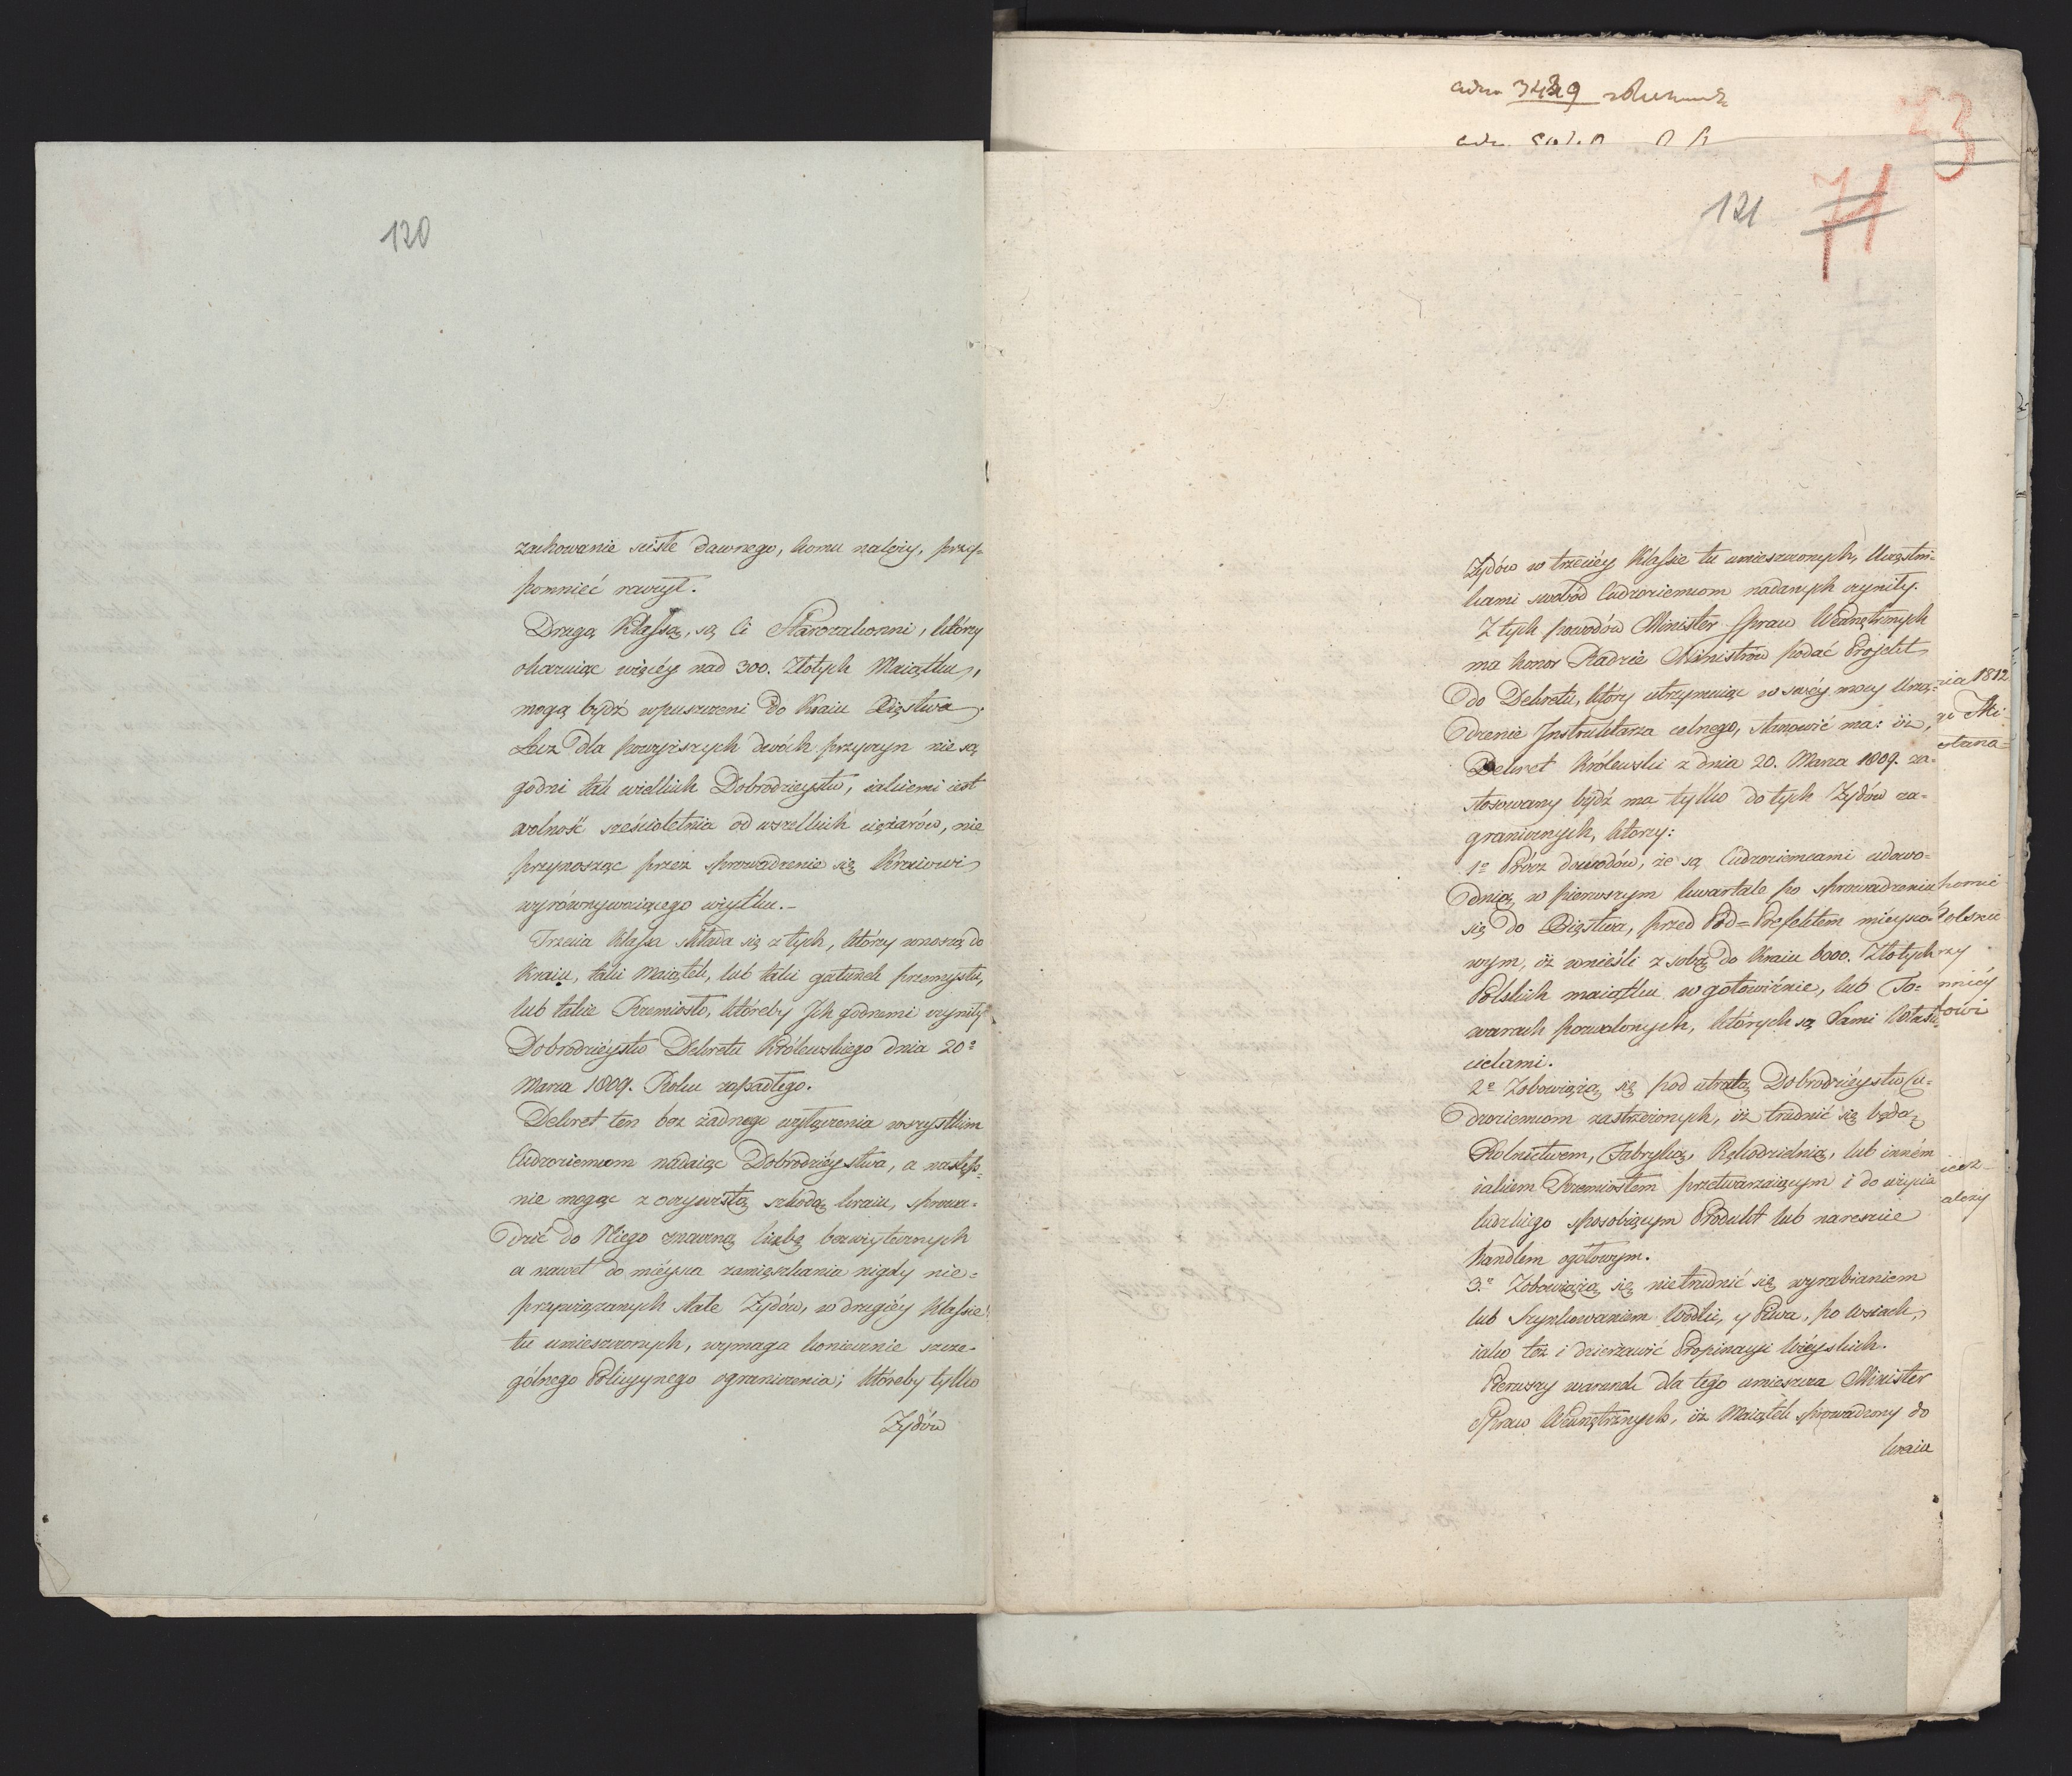 120
zachowanie ściśle dawnego, komu należy, przy-
pomnieć raczył.
Drugą Klassą, są Ci Starozakonni, którzy
okazuiąc więcéy nad 300. Złotych Maiątku,
mogą bydź wpuszczeni do Kraiu Xięstwa.
Lecz dla powyższych dwóch przyczyn nie są
godni tak wielkich Dobrodzieystw, iakiemi iest
wolność sześcioletnia od wszelkich ciężarów, nie
przynosząc przez sprowadzenie się Kraiowi
wyrównywaiącego użytku.-
Trzecia Klassa składa się z tych, którzy wnoszą do
Kraiu, taki Maiątek, lub taki gatunek przemysłu,
lub takie Rzemiosło, któreby Ich godnemi czyniły
Dobrodzieystw Dekretu Królewskiego dnia 20º
Marca 1809. Roku zapadłego.
Dekret ten bez żadnego wyłączenia wszystkim
Cudzoziemcom nadaiąc Dobrodzieystwa, a następ-
nie mogąc z oczywistą szkodą kraiu, sprowa-
dzić do Niego znaczną liczbę bezużytecznych
a nawet do mieysca zamięszkania nigdy nie=
przywiązanych stale Żydów, w drugiéy Klassie
tu umieszczonych, wymaga koniecznie szcze-
gólnego Policyynego ograniczenia; któreby tylko
Żydów
adn 3439
23
121 71
Żydów w trzeciéy Klassie tu umieszczonych, Uczęstni=
kami swobód Cudzoziemcom nadanych czyniły.
Z tych powodów Minister Spraw Wewnętrznych
ma honor Radzie Ministrów podać Projekt
do Dekretu, który utrzymuiąc w swéy mocy Urzą=
dzenie Instruktarza celnego, stanowić ma: iż,
Dekret Królewski z dnia 20. Marca 1809. za-
stosowany bydź ma tylko do tych Żydów za-
granicznych, którzy:
1º Prócz dowodów, że są Cudzoziemcami udowo=
dnią, w pierwszym kwartale po sprowadzeniu
się do Xięstwa, przed Pod=Prefektem mieysco=
wym, iż wnieśli z sobą do Kraiu 6000. Złotych
Polskich maiątku w gotowiźnie, lub To=
warach pozwolonych, których są Sami Właści=
cielami.
2º Zobowiążą się pod utratą Dobrodzieystw Cu=
dzoziemcom zastrzeżonych, iż trudnić się będą
Rolnictwem, Fabryką, Rękodzielnią, lub inném
iakiem Rzemiosłem przetwarzaiącym i do użycia
ludzkiego sposobiącym Produkt lub nareszcie
handlem ogółowym.
3º Zobowiążą się nietrudnić się wyrabianiem
lub Szynkowaniem Wódki, y Piwa, po Wsiach,
iako też i dzierżawić Propinacyi Wieyskich.
Pierwszy warunek dla tego umieszcza Minister
Spraw Wewnętrznych, iż Maiątek sprowadzony do
kraiu
1812